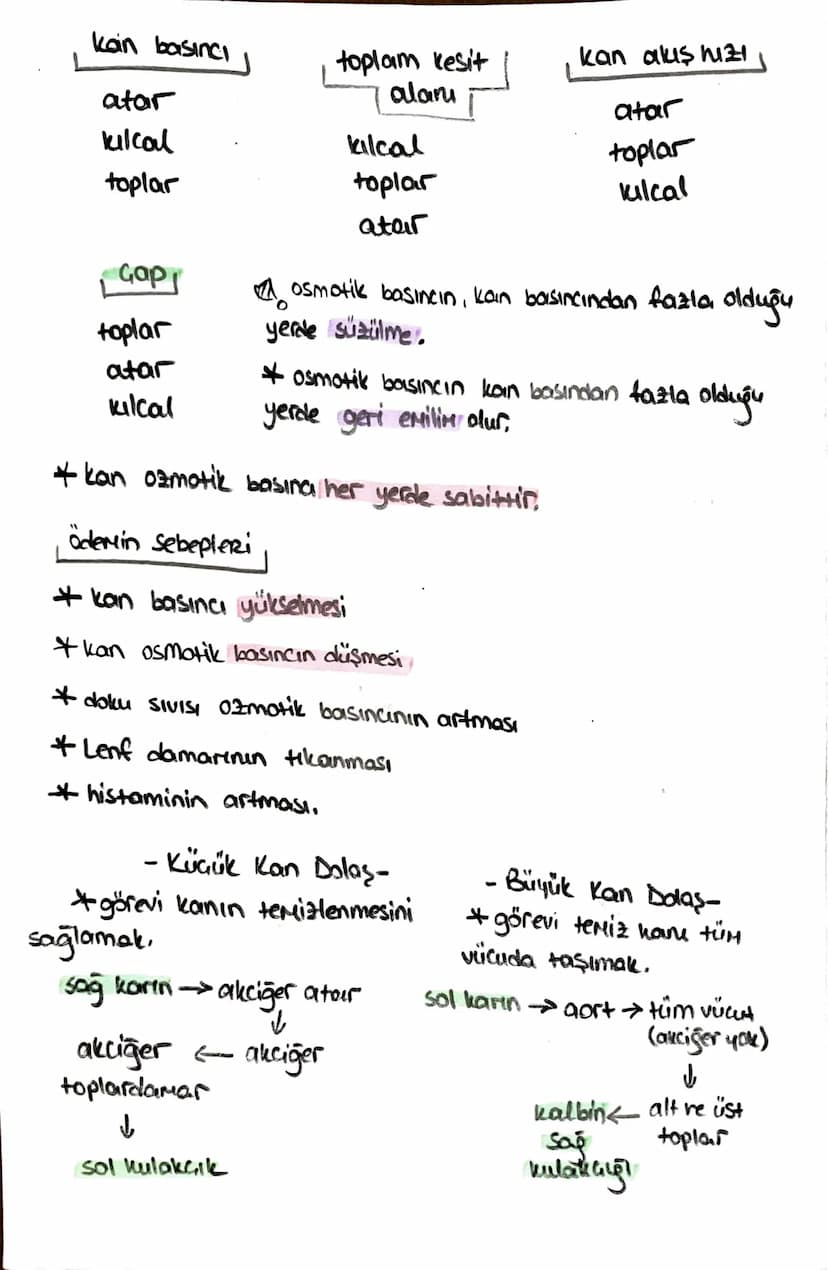 kan basıncı
atar
kılcal
toplar
toplam kesit
alanı
kılcal
toplar
atar
kan akış hızı
atar
toplar
kılcal
Çap
toplar
atar
kılcal
osmotik basıncın, kan basıncından fazla olduğu
yerde süzülme.
* osmotik basıncın kan basından fazla olduğu
yerde geri emilim olur.
* kan ozmotik basıncı her yerde sabittir.
Ödemin Sebepleri
* kan basıncı yükselmesi
* kan osmotik basıncın düşmesi
* doku sıvısı ozmotik basıncının artması
* Lenf damarının tıkanması
* histaminin artması.
- Küçük Kan Dolaş-
* görevi kanın temizlenmesini
sağlamak.
sağ karın → akciğer atar
↓
akciğer ← akciğer
toplardamar
↓
sol kulakcık
- Büyük Kan Dolaş-
* görevi temiz kanı tüm
vücuda taşımak.
sol karın → aort → tüm vücut
(akciğer yok)
↓
kalbin ← alt ve üst
sağ toplar
kulakcığı